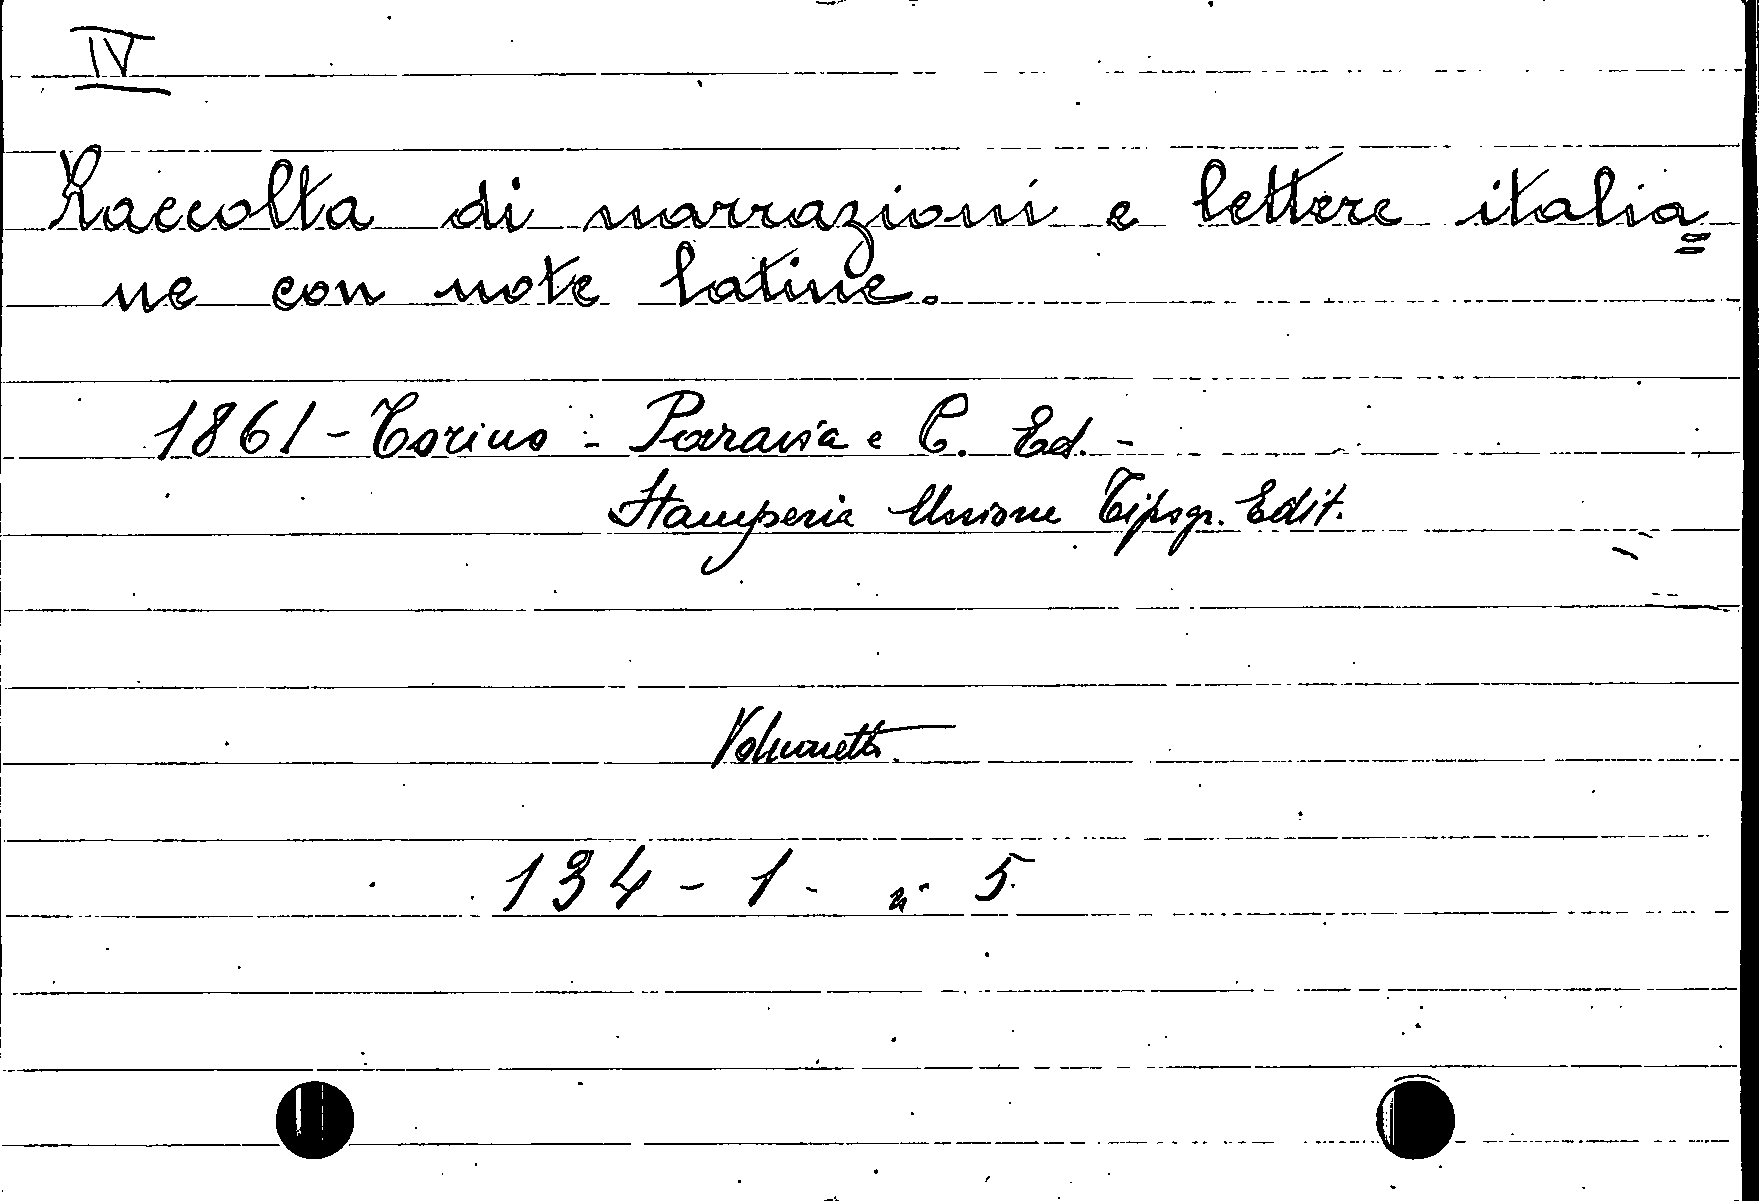 IV
Raccolta di narrazioni e lettere italia=
ne con note latine.
1861 - Torino - Paravia e C. Ed. -
Stamperia Unione Tipogr. Edit.
Volumetto.
134 - 1 - n° 5.